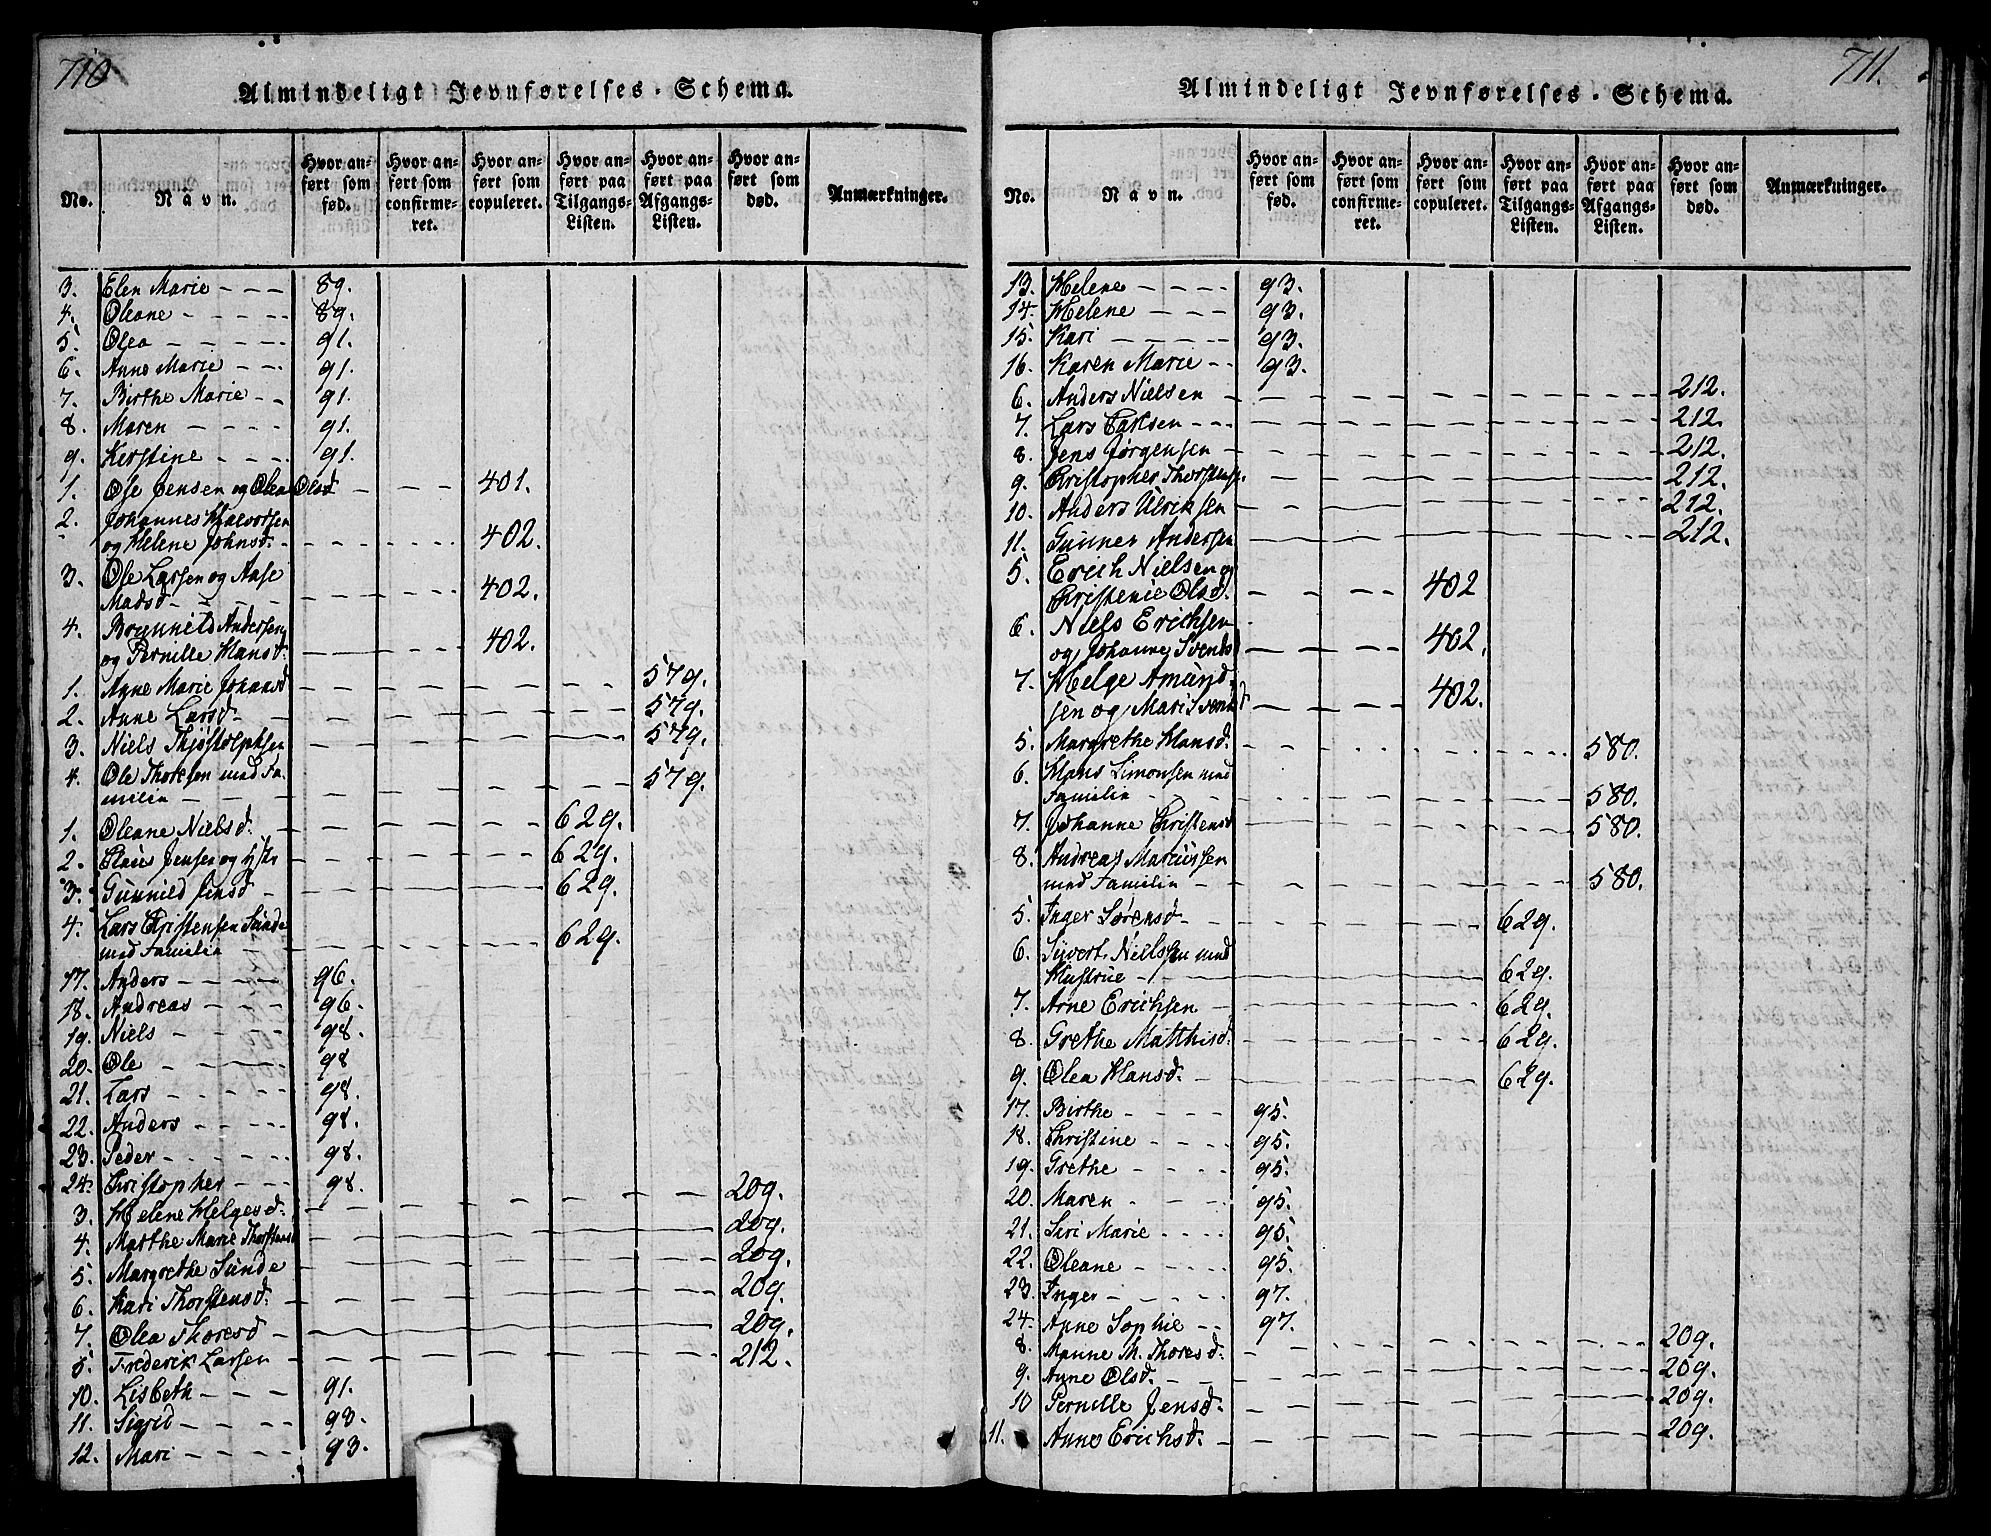 710
Almindeligt Jevnførelses-Schema.
No.
Navn.
Hvor an-
ført som
fød.
Hvor an-
ført som
confirme-
ret.
Hvor an-
ført som
copuleret.
Hvor an-
ført paa
Tilgangs-
Listen.
Hvor an-
ført paa
Afgangs-
Listen.
Hvor an-
ført som
død.
Anmærkninger.
3. Elen Marie - - - 89.
4. Oleane - - - - - 89.
5. Olea - - - - - 91.
6. Anne Marie - - 91.
7. Birthe Marie - - 91.
8. Maren - - - - 91.
9. Kerstine - - - - 91.
1. Ole Jensen og Olea Olsd - - - 401.
2. Johannes Halvorsen
og Helene Johnsd. - - - - - - 402.
3. Ole Larsen og Aase
Madsd - - - - - - 402.
4. Brynnild Andersen
og Pernille Hansd. - - - - 402.
1. Anne Marie Johansd - - - - - - - - 579.
2. Anne Larsd - - - - - - - - 579.
3. Niels Thjøstolphsen - - - - - - - 579.
4. Ole Thoresen med Fa-
milie - - - - - - - - 579.
1. Oleane Nielsd. - - - - - - 629.
2. Claus Jensen og - - - - - 629.
3. Gunnild Jensd - - - - - - 629.
4. Lars Christensen Sunde
med Familie - - - - - - 629.
17. Anders - - - - - 96.
18. Andreas - - - - 96.
19. Niels - - - - - 98.
20. Ole - - - - - 98
21. Lars - - - - - 98.
22. Anders - - - - 98.
23. Peder - - - - - 98.
24. Christopher - - - 98.
3. Helene Helgesd. - - - - - - - - 209.
4. Marthe Marie Thorstensd - - - - - - - 209.
5. Margrethe Sunde - - - - - - - - 209.
6. Kari Thorstensd. - - - - - - - - 209.
7. Olea Thoresd - - - - - - - - 209.
5. Frederik Larsen - - - - - - - - 212.
10. Lisbeth - - - - 91.
11. Sigrid - - - - - 93.
12. Mari - - - - - 93.
711.
Almindeligt Jevnførelses-Schema.
No.
Navn.
Hvor an-
ført som
fød.
Hvor an-
ført som
confirme-
ret.
Hvor an-
ført som
copuleret.
Hvor an-
ført paa
Tilgangs-
Listen.
Hvor an-
ført paa
Afgangs-
Listen.
Hvor an-
ført som
død.
Anmærkninger.
13. Helene - - - - 93.
14. Helene - - - - 93.
15. Kari - - - - - 93.
16. Karen Marie - - 93.
6. Anders Nielsen - - - - - - - - 212.
7. Lars Carlsen - - - - - - - - 212.
8. Jens Jørgensen - - - - - - - - 212.
9. Christopher Thorstens. - - - - - - - 212.
10. Anders Ulriksen - - - - - - - - 212.
11. Gunner Andersen - - - - - - - - 212.
5. Erich Nielsen og
Christenie Olsd. - - - - 402
6. Niels Erichsen
og Johanne Svendsd - - - - 402.
7. Helge Amund-
sen og Mari Svendsd - - - - 402.
5. Margrethe Hansd. - - - - - - - - 580.
6. Hans Simonsen med
Familie - - - - - - - - 580.
7. Johanne Christensd - - - - - - - 580.
8. Andreas Marcussen
med Familie - - - - - - - - 580.
5. Inger Sørensd. - - - - - - 629.
6. Sivert Nielssen med
Hustrue - - - - - - 629.
7. Arne Erichsen - - - - - - 629.
8. Grethe Matthisd. - - - - - - 629.
9. Olea Hansd. - - - - - - 629.
17. Birthe - - - - 95.
18. Christine - - - - 95.
19. Grethe - - - - 95.
20. Maren - - - - 95.
21. Siri Marie - - - - 95.
22. Oleane - - - - - 95.
23. Inger - - - - - 97.
24. Anne Sophie - - 97.
8. Manne M. Thoresd. - - - - - - - 209.
9. Anne Olsd. - - - - - - - - 209.
10 Pernille Jensd. - - - - - - - - 209.
11. Anne Erichsd. - - - - - - - - 209.